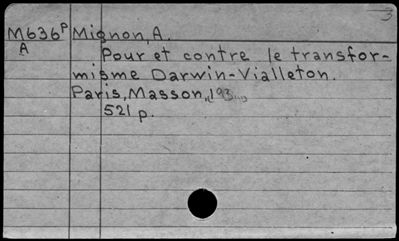 3
M636P Mignon, A.
A Pour et contre le transfor-
misme Darwin-Vialleton.
Paris, Masson,
521 p.